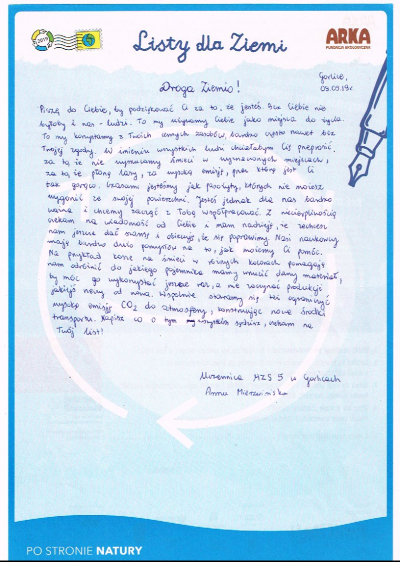 Listy dla Ziemi
ARKA
FUNDACJA EKOLOGICZNA
Gorlice,
09.09.19r.
Droga Ziemio!
Piszę do Ciebie, by podziękować Ci za to, że jesteś. Bez Ciebie nie
byłoby i nas - ludzi. To my używamy Ciebie jako miejsca do życia.
To my korzystamy z Twoich cennych zasobów, bardzo często nawet bez
Twojej zgody. W imieniu wszystkich ludzi chciałabym Cię przeprosić,
za to, że nie wyrzucamy śmieci w wyznaczonych miejscach,
za to, że płoną lasy, za wysoką emisję, przez którą jest Ci
tak gorąco. Czasami jesteśmy jak pasożyty, których nie możesz
wygonić ze swojej powierzchni. Jesteś jednak dla nas bardzo
ważna i chcemy zacząć z Tobą współpracować. Z niecierpliwością
czekam na wiadomość od Ciebie i mam nadzieję, że zechcesz
nam jeszcze dać szansę i obiecuję, że się poprawimy. Nasi naukowcy
mają bardzo dużo pomysłów na to, jak możemy Ci pomóc.
Na przykład kosze na śmieci w różnych kolorach pomagają
nam odróżnić do jakiego pojemnika mamy wrzucić dany materiał,
by móc go wykorzystać jeszcze raz, a nie zaczynać produkcję
jakiejś rzeczy od nowa. Wspólnie staramy się też ograniczyć
wysoką emisję CO2 do atmosfery, konstruując nowe środki
transportu. Napisz co o tym wszystkim sądzisz, czekam na
Twój list!
Uczennica MZS 5 w Gorlicach
Anna
PO STRONIE NATURY